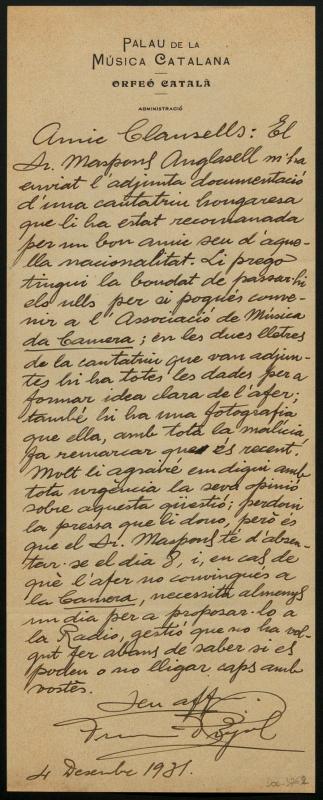 PALAU DE LA
MÚSICA CATALANA
ORFEÓ CATALÀ
ADMINISTRACIÓ
Amic Clausells: El
Sr. Maspons Anglasell m'ha
enviat l'adjunta documentació
d'una cantatriu hongaresa
que li ha estat recomanada
per un bon amic seu d'aque-
lla nacionalitat. Li prego
tingui la bondat de passar-hi
els ulls per si pogués conve-
nir a l'Associació de Música
da Camera; en les dues lletres
de la cantatriu que van adjun-
tes hi ha totes les dades per a
formar idea clara de l'afer;
també hi ha una fotografia
que ella, amb tota la malícia,
fa remarcar que és recent.
Molt li agrairé em digui amb
tota urgència la seva opinió
sobre aquesta qüestió; perdoni
la pressa que li dono, però és
que el Sr. Maspons té d'absen-
tar-se el dia 8, i, en cas de
què l'afer no convingués a
la Camera, necessita almenys
un dia per a proposar-lo a
la Radio, gestió que no ha vol-
gut fer abans de saber si es
poden o no lligar caps amb
vostès.
Seu aff.
Francesc Pujol
4 Desembre 1931.